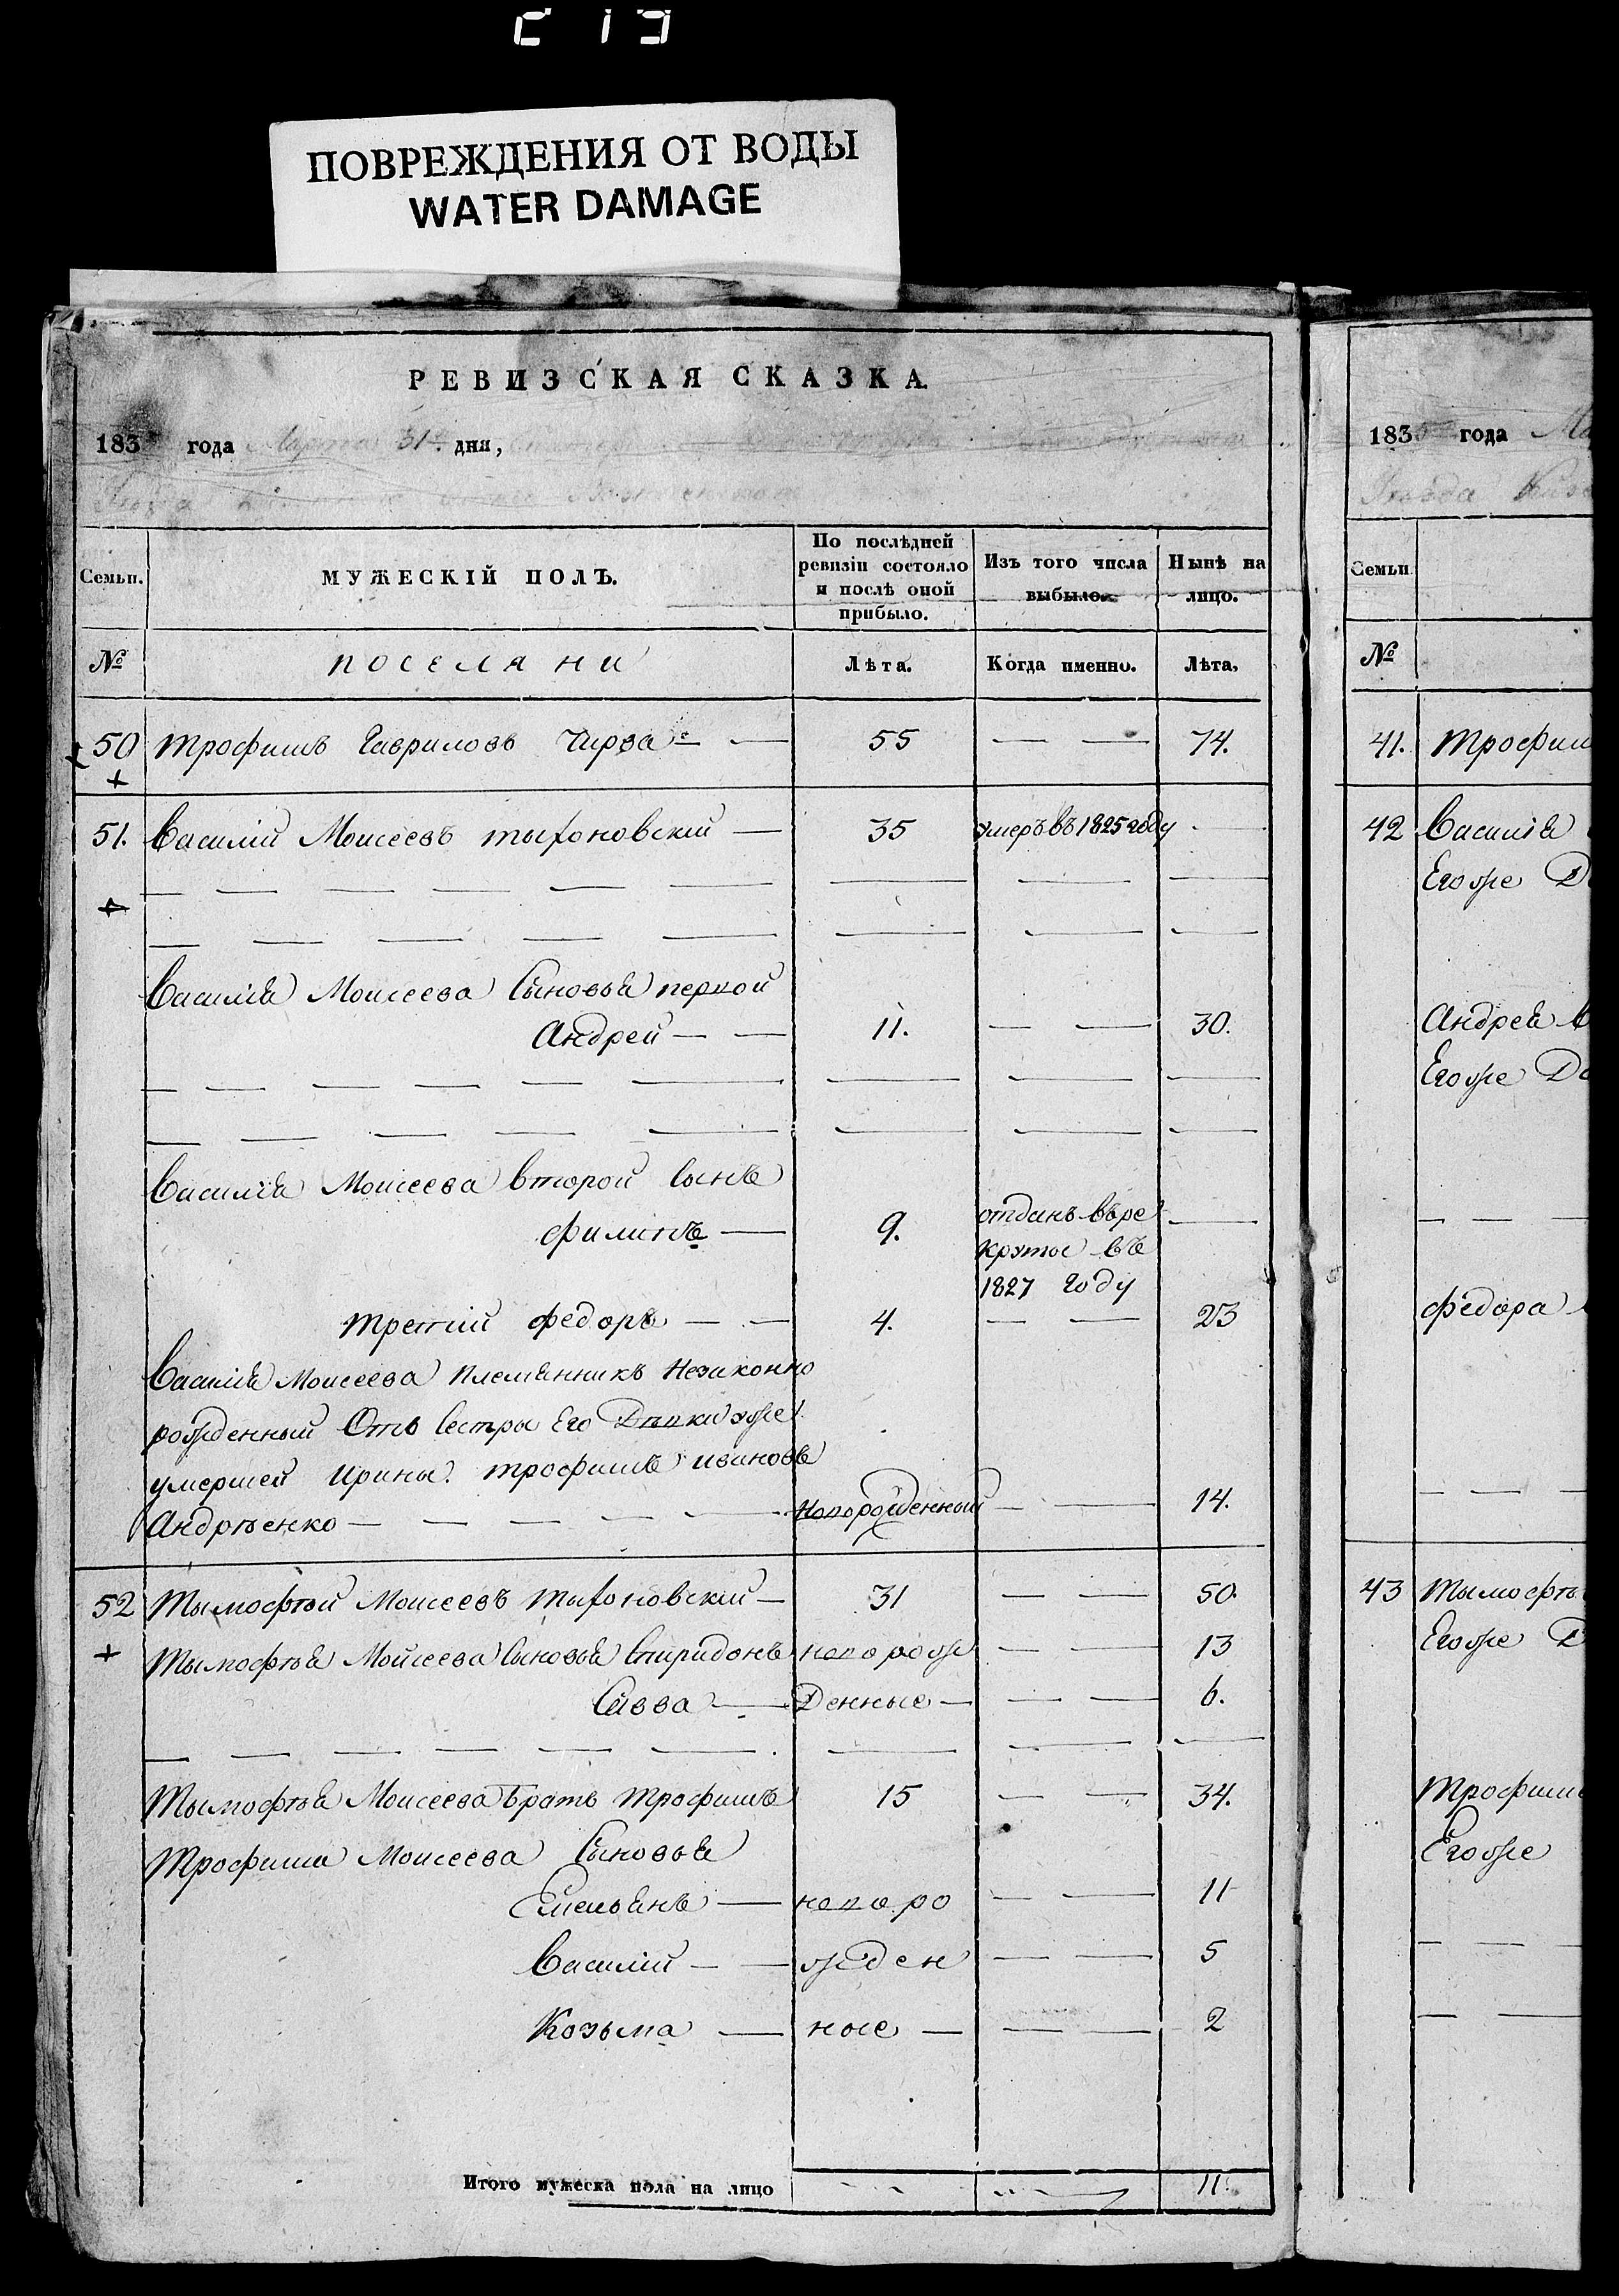 ПОВРЕЖДЕНИЯ ОТ ВОДЫ
WATER DAMAGE
РЕВИЗСКАЯ СКАЗКА.
183 года Марта 31го дня,
Семьи. МУЖЕСКІЙ ПОЛЪ. По послѣдней ревизіи состояло и послѣ оной прибыло. Изъ того числа выбыло. Нынѣ на лицо.
№ поселяни Лѣта. Когда именно. Лѣта.
50 Трофимъ Гавриловъ Чирва — — 55 — — 74.
51. Василій Моисеевъ — 35 умеръ въ 1825 году —
Василія Моисеева Сыновья первой
Андрей — — 11. — — 30.
Василія Моисеева второй сынъ
Филипъ — 9. отданъ въ ре —
круты въ
1827 году
третій Федоръ — — 4. — — 23
Василія Моисеева Племянникъ Незаконно
рожденный Отъ Сестры Его уже
умершей Ирины. Трофимъ Ивановъ
Андрѣенко — — — — — — Новорожденный — — 14.
52 Тымофѣй Моисеевъ — 31 — — 50.
Тымофѣя Моисеева Сыновья Спиридонъ новорож — — 13
Савва — Денные — — — 6.
Тымофѣя Моисеева Братъ Трофимъ 15 — — 34.
Трофима Моисеева Сыновья
Емельянъ — новоро — — 11
Василій — — жден — — 5
Козьма — ные — — — 2
Итого мужеска пола на лицо 11.
183 года
Уѣзда
Семьи
№
41. Трофим
42 Василія
Егоже
Андрея
Егоже
Федора
43 Тымофѣ
Егоже
Трофим
Егоже